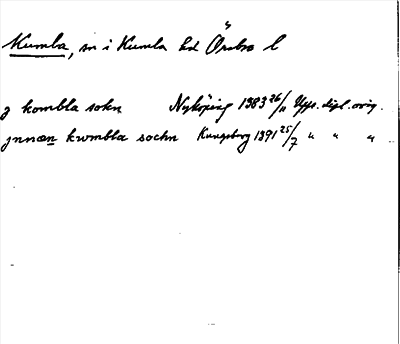 Kumla, sn i Kumla hd Örebro l
j kombla sokn Nyköping 1383 26/11 Upps. dipl. orig.
jnnæn kwmbla sochn Kungsberg 1391 25/7 " " "